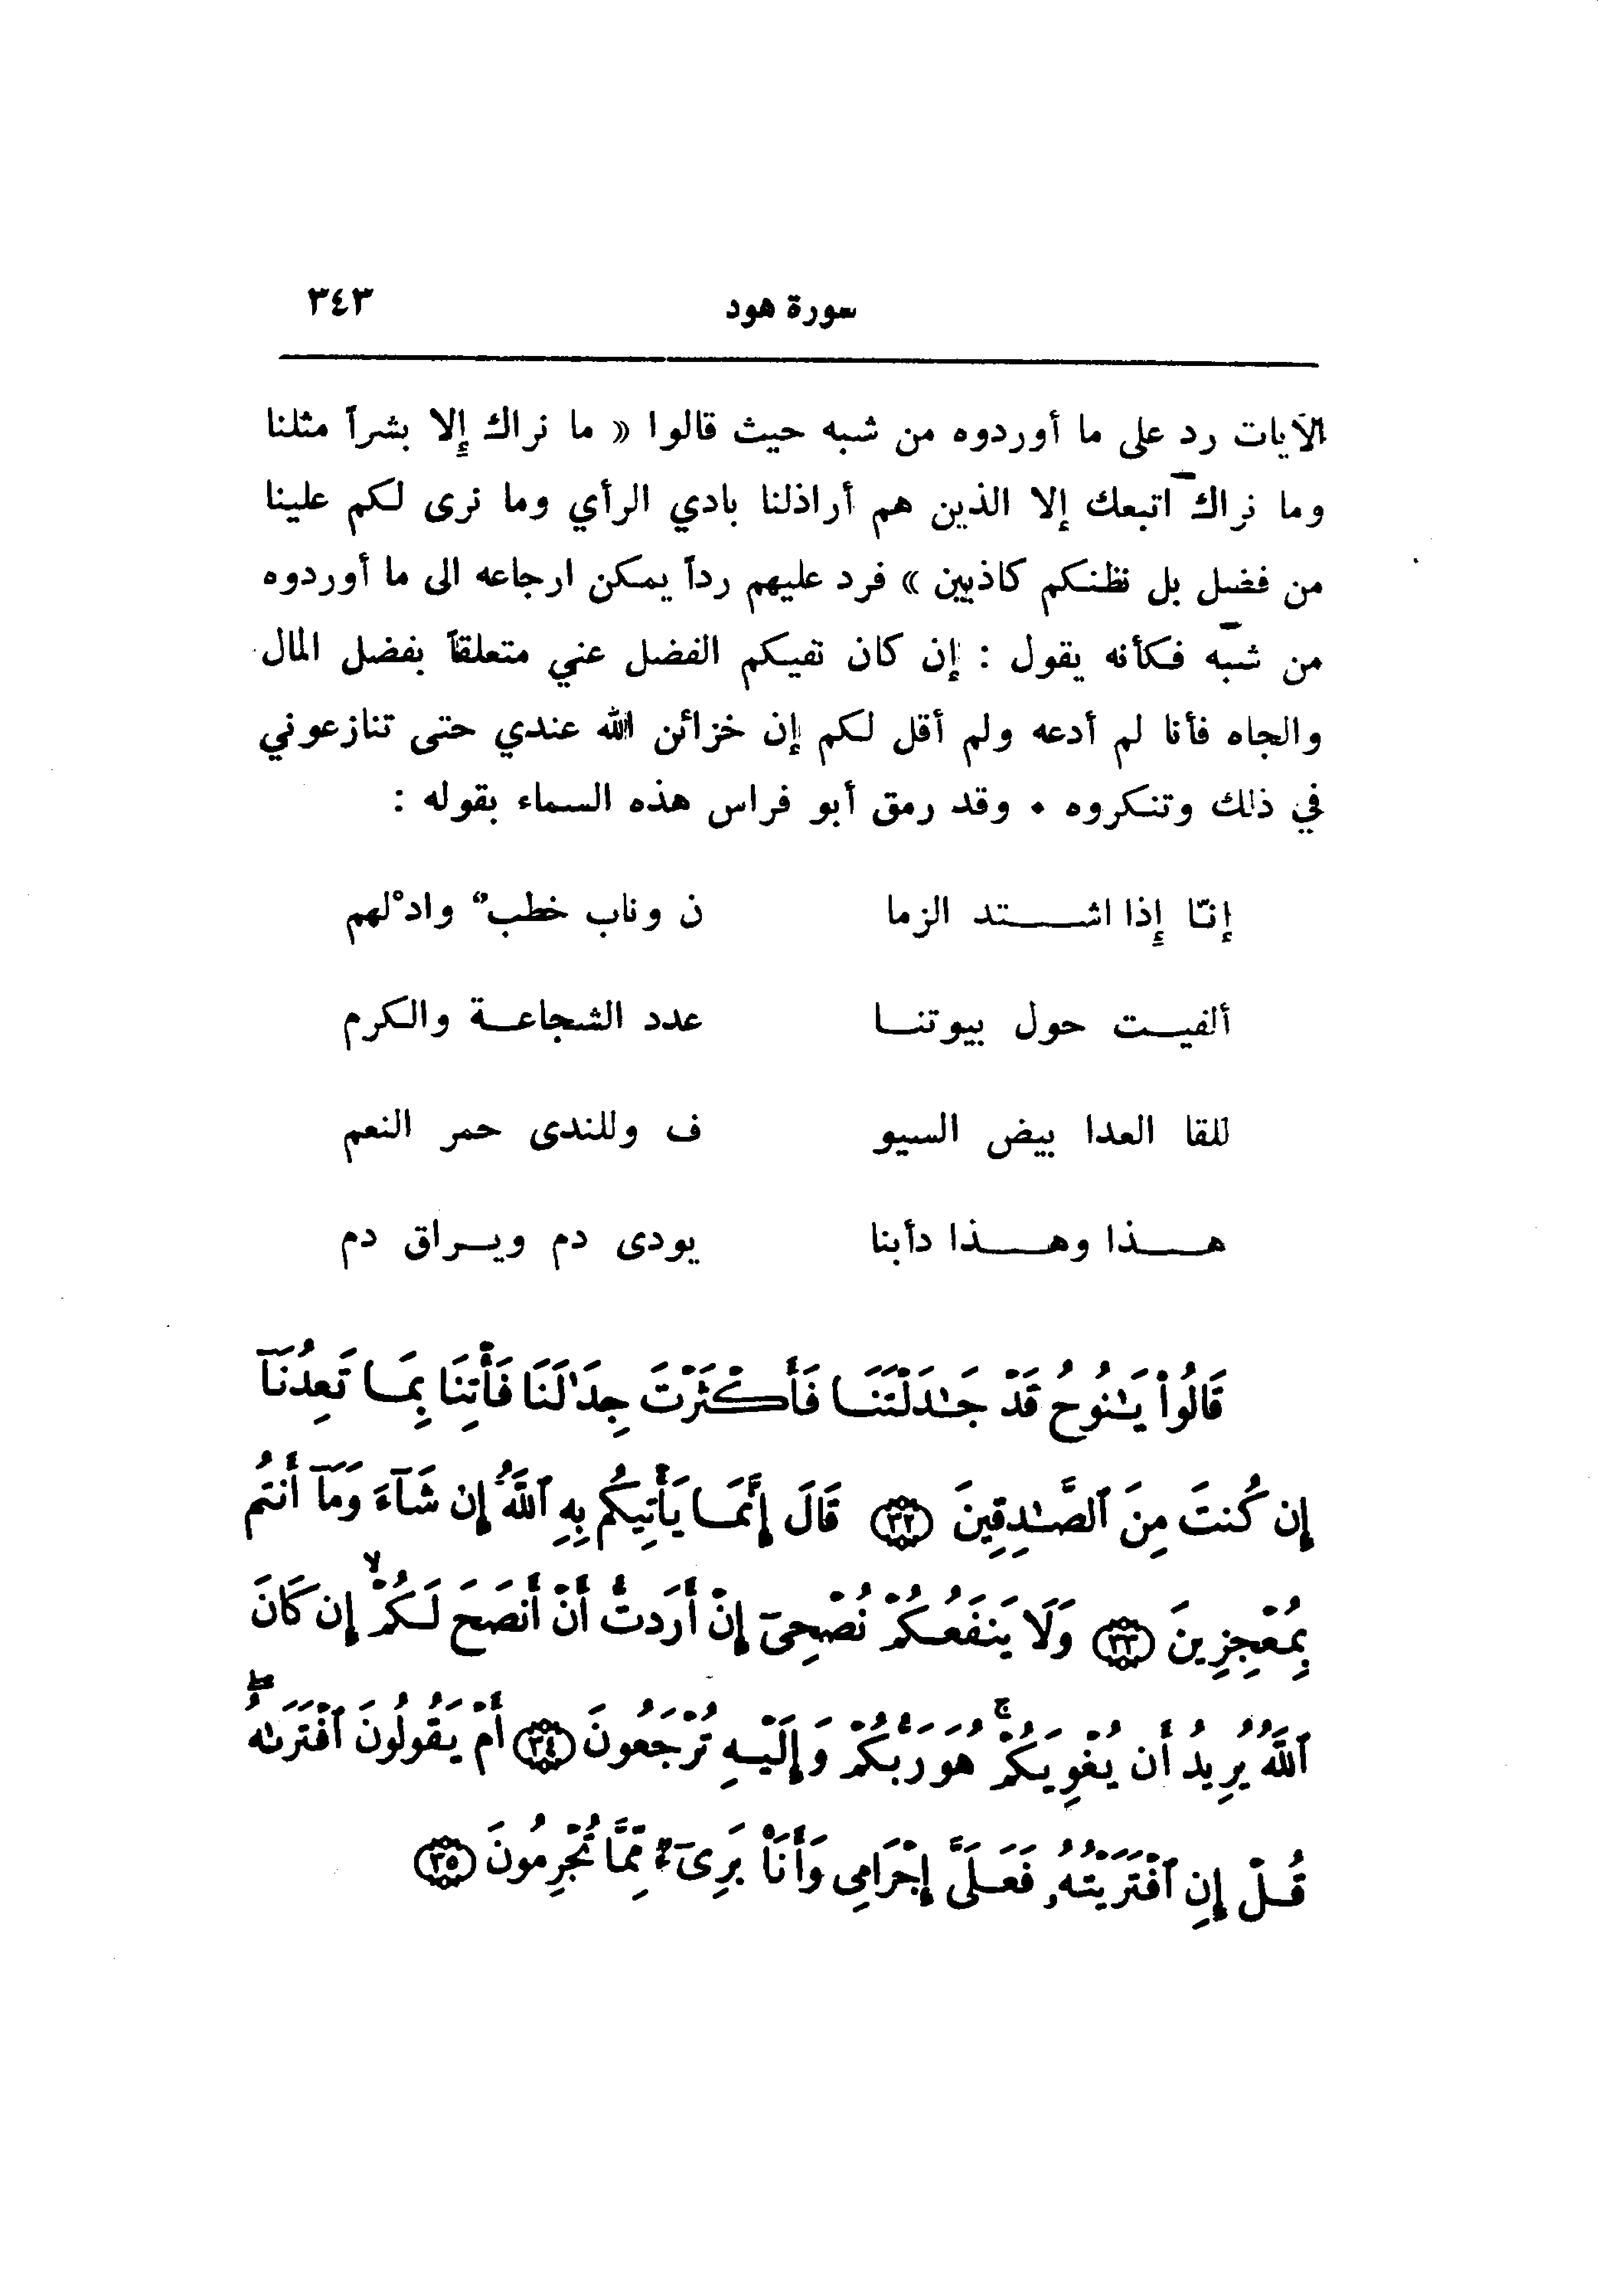 سورة هود ٣٤٣
الآيات رد على ما أوردوه من شبه حيث قالوا « ما نراك إلا بشراً مثلنا
وما نراك اتبعك إلا الذين هم أراذلنا بادي الرأي وما نرى لكم علينا
من فضل بل نظنكم كاذبين » فرد عليهم رداً يمكن ارجاعه الى ما أوردوه
من شبه فكأنه يقول : إن كان نفيكم الفضل عني متعلقاً بفضل المال
والجاه فأنا لم أدعه ولم أقل لكم إن خزائن الله عندي حتى تنازعوني
في ذلك وتنكروه . وقد رمق أبو فراس هذه السماء بقوله :
إنّا إذا اشـــتد الزما ن وناب خطبٌ وادْلهم
ألفيـت حول بيوتنـا عدد الشجاعـة والكرم
للقا العدا بيض السيو ف وللندى حمر النعم
هـــذا وهـــذا دأبنا يودى دم ويـراق دم
قَالُوا۟ يَـٰنُوحُ قَدْ جَـٰدَلْتَنَا فَأَكْثَرْتَ جِدَٰلَنَا فَأْتِنَا بِمَا تَعِدُنَآ
إِن كُنتَ مِنَ ٱلصَّـٰدِقِينَ ﴿٣٢﴾ قَالَ إِنَّمَا يَأْتِيكُم بِهِ ٱللَّهُ إِن شَآءَ وَمَآ أَنتُم
بِمُعْجِزِينَ ﴿٣٣﴾ وَلَا يَنفَعُكُمْ نُصْحِىٓ إِنْ أَرَدتُّ أَنْ أَنصَحَ لَكُمْ ۙ إِن كَانَ
ٱللَّهُ يُرِيدُ أَن يُغْوِيَكُمْ ۚ هُوَ رَبُّكُمْ وَإِلَيْهِ تُرْجَعُونَ ﴿٣٤﴾ أَمْ يَقُولُونَ ٱفْتَرَىٰهُ ۖ
قُلْ إِنِ ٱفْتَرَيْتُهُۥ فَعَلَىَّ إِجْرَامِى وَأَنَا۠ بَرِىٓءٌ مِّمَّا تُجْرِمُونَ ﴿٣٥﴾